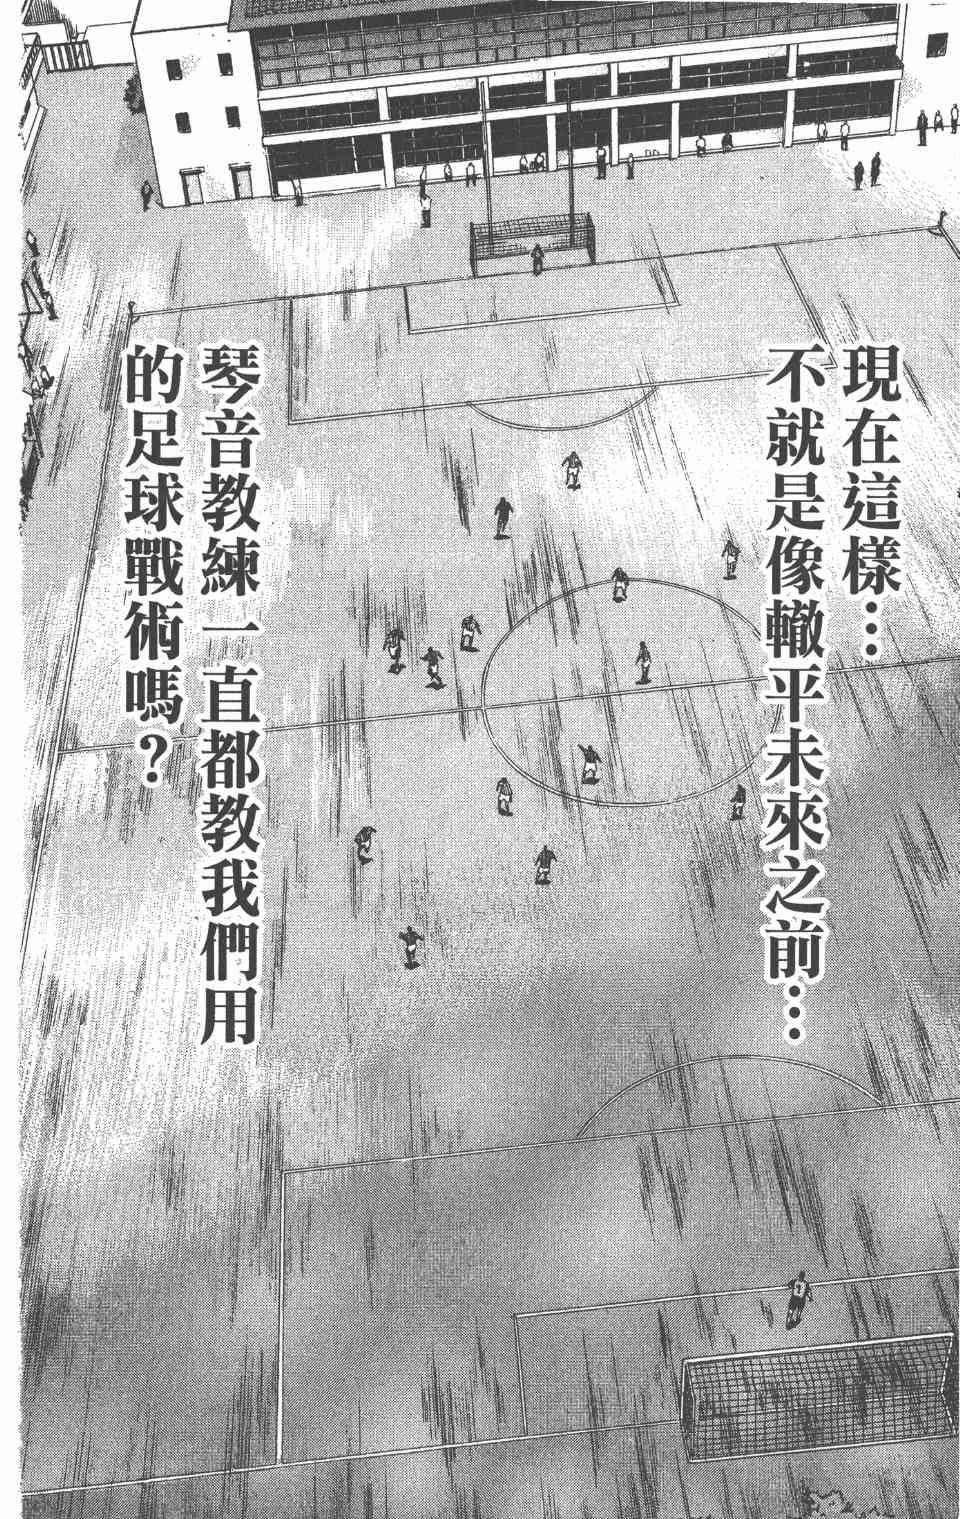 現在這樣⋯
不就是像轍平未來之前⋯
琴音教練一直都教我們用
的足球戰術嗎？